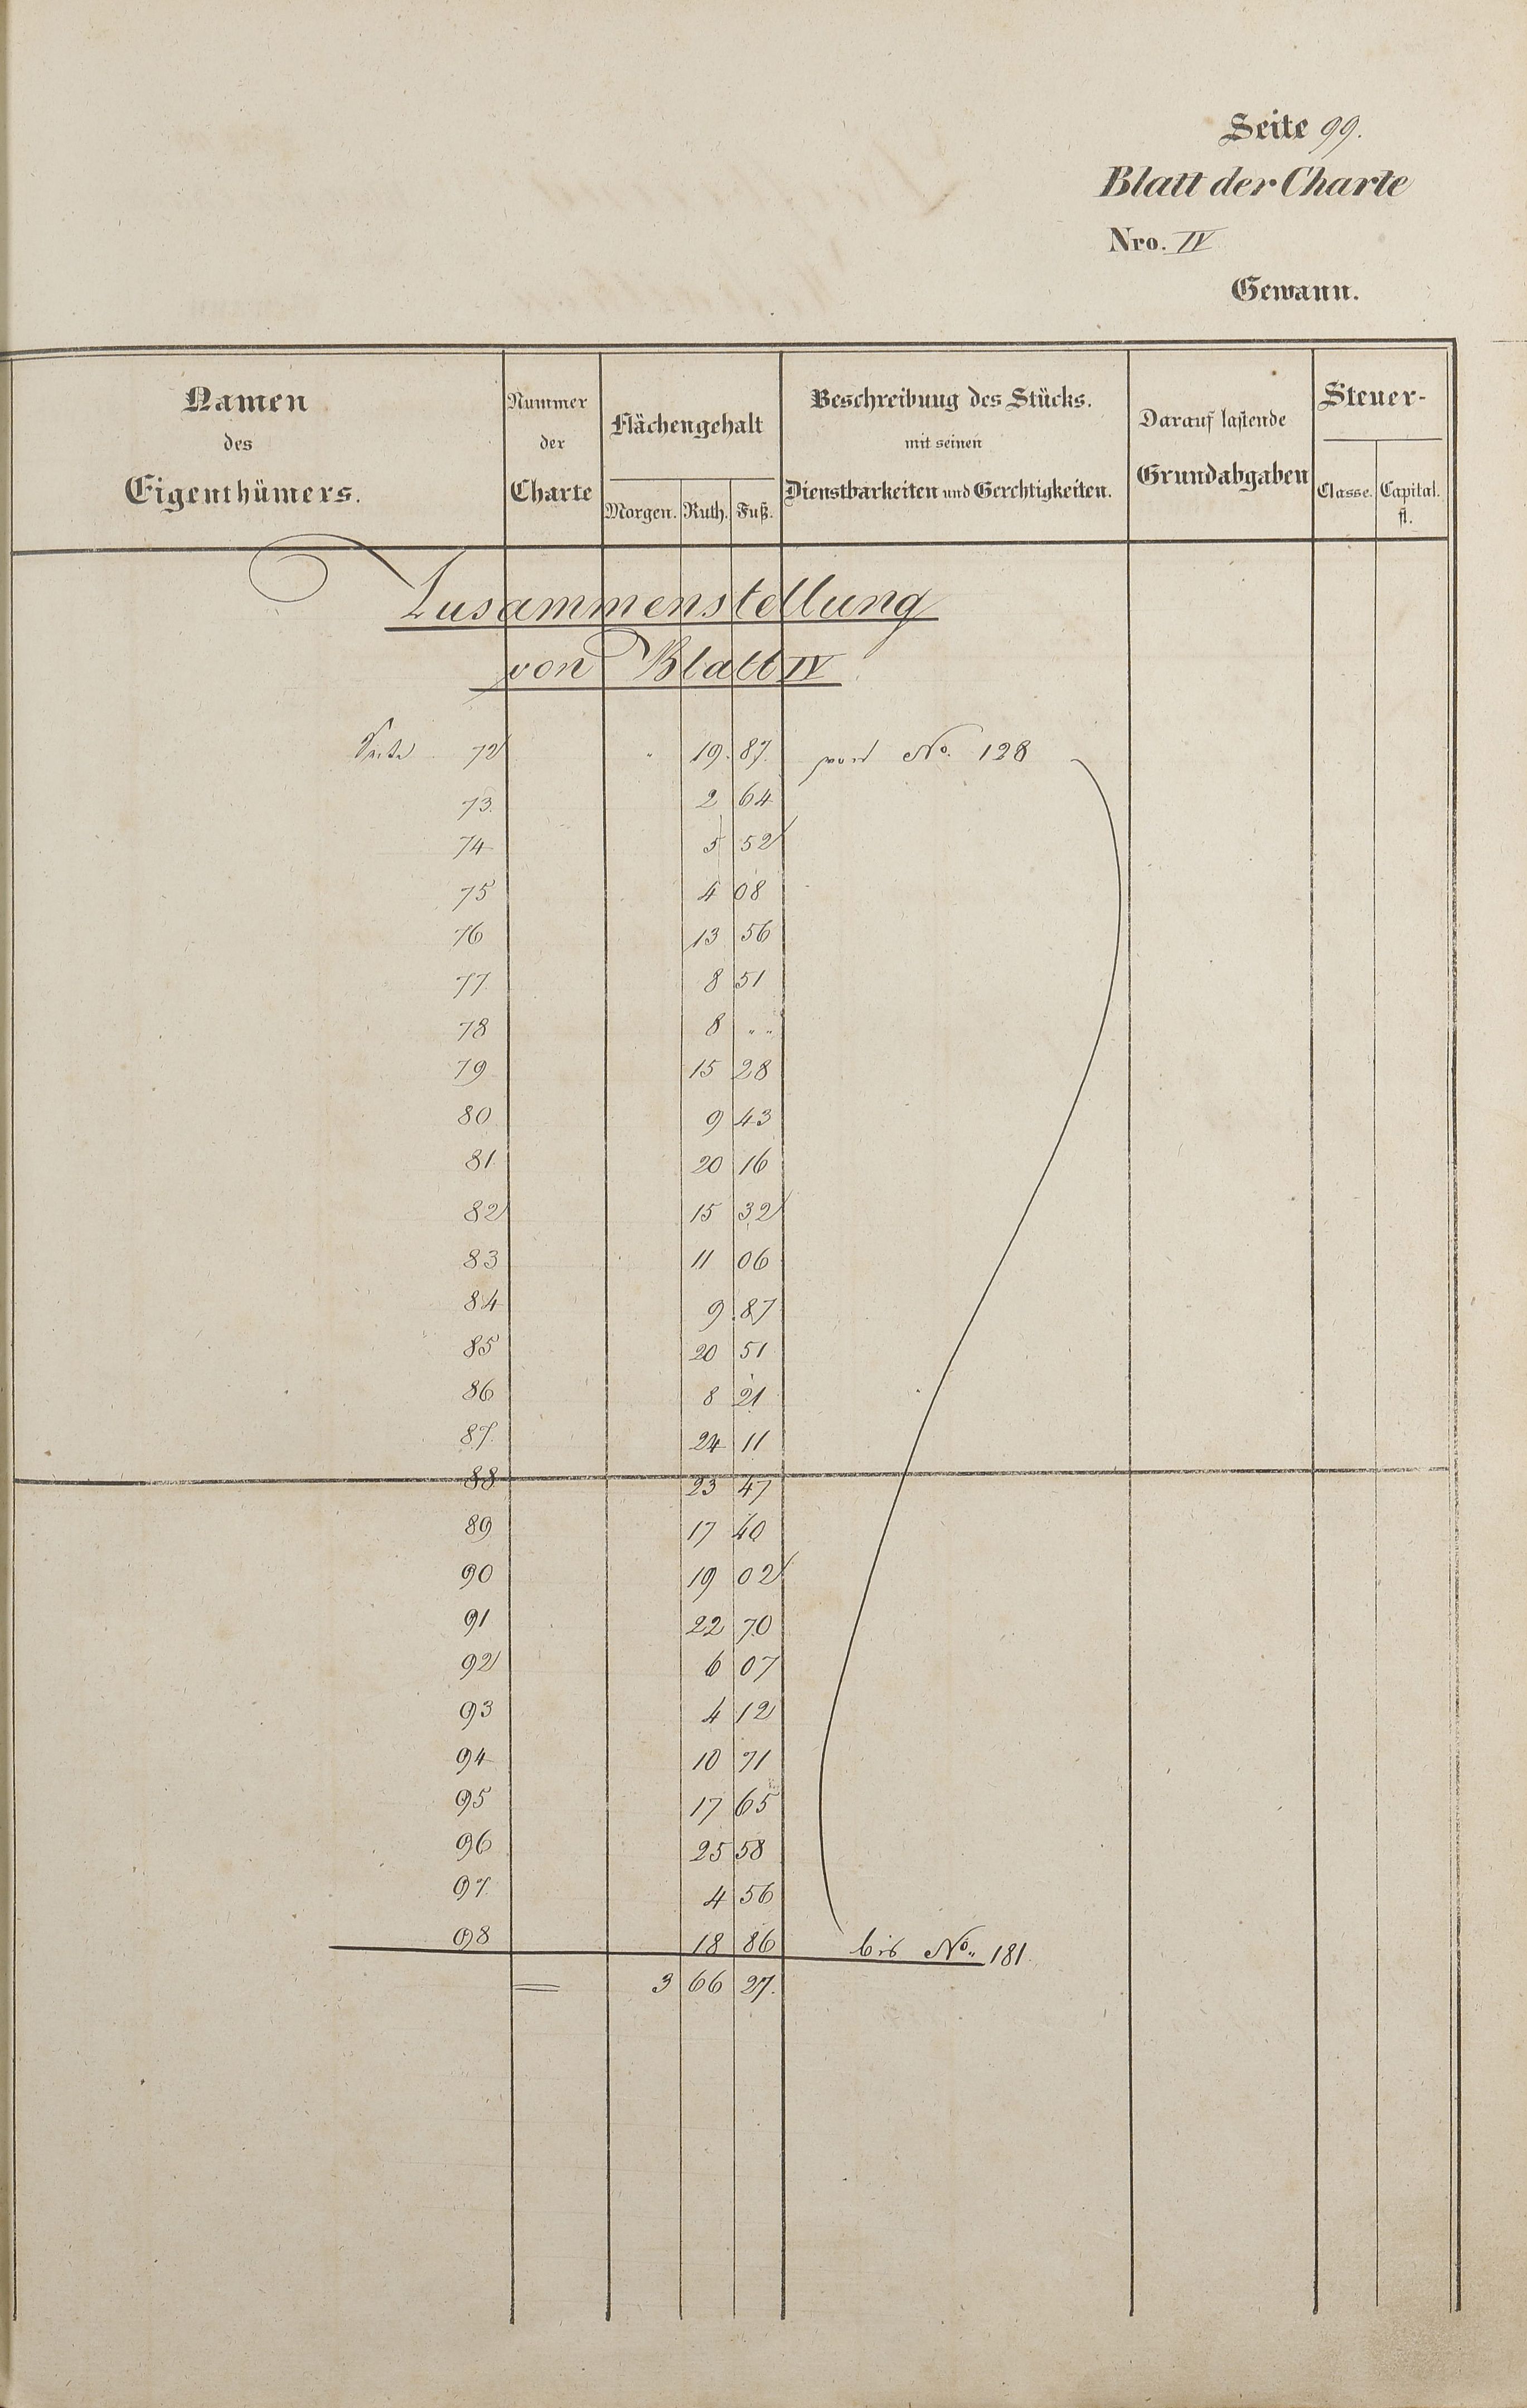 Seite 99.
Blatt der Charte
Nro. IV
Gewann.
Namen des Eigenthümers.
Nummer der Charte
Flächengehalt
Morgen. Ruth. Fuß.
Beschreibung des Stücks. mit seinen Dienstbarkeiten und Gerechtigkeiten.
Darauf lastende Grundabgaben
Steuer-
Classe. Capital. fl.
Zusammenstellung
von Blatt IV
Seite 72 " 19. 87. von No. 128
73. 2 64
74 5 52
75 4 08
76 13 56
77 8 51
78 8 " "
79 15 28
80 9 43
81 20 16
82 15 32
83 11 06
84 9 87
85 20 51
86 8 21
87. 24 11
88 23 47
89 17 40
90 19 02
91 22 70
92 6 07
93 4 12
94 10 71
95 17 65
96 25 58
97 4 56
98 18 86 bis No. 181.
= 3 66 27.